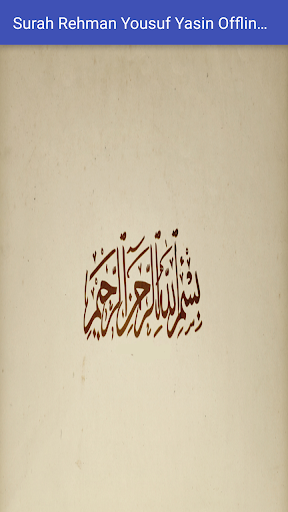 Surah Rehman Yousuf Yasin Offlin...
بِسْمِ اللَّهِ الرَّحْمَٰنِ الرَّحِيمِ